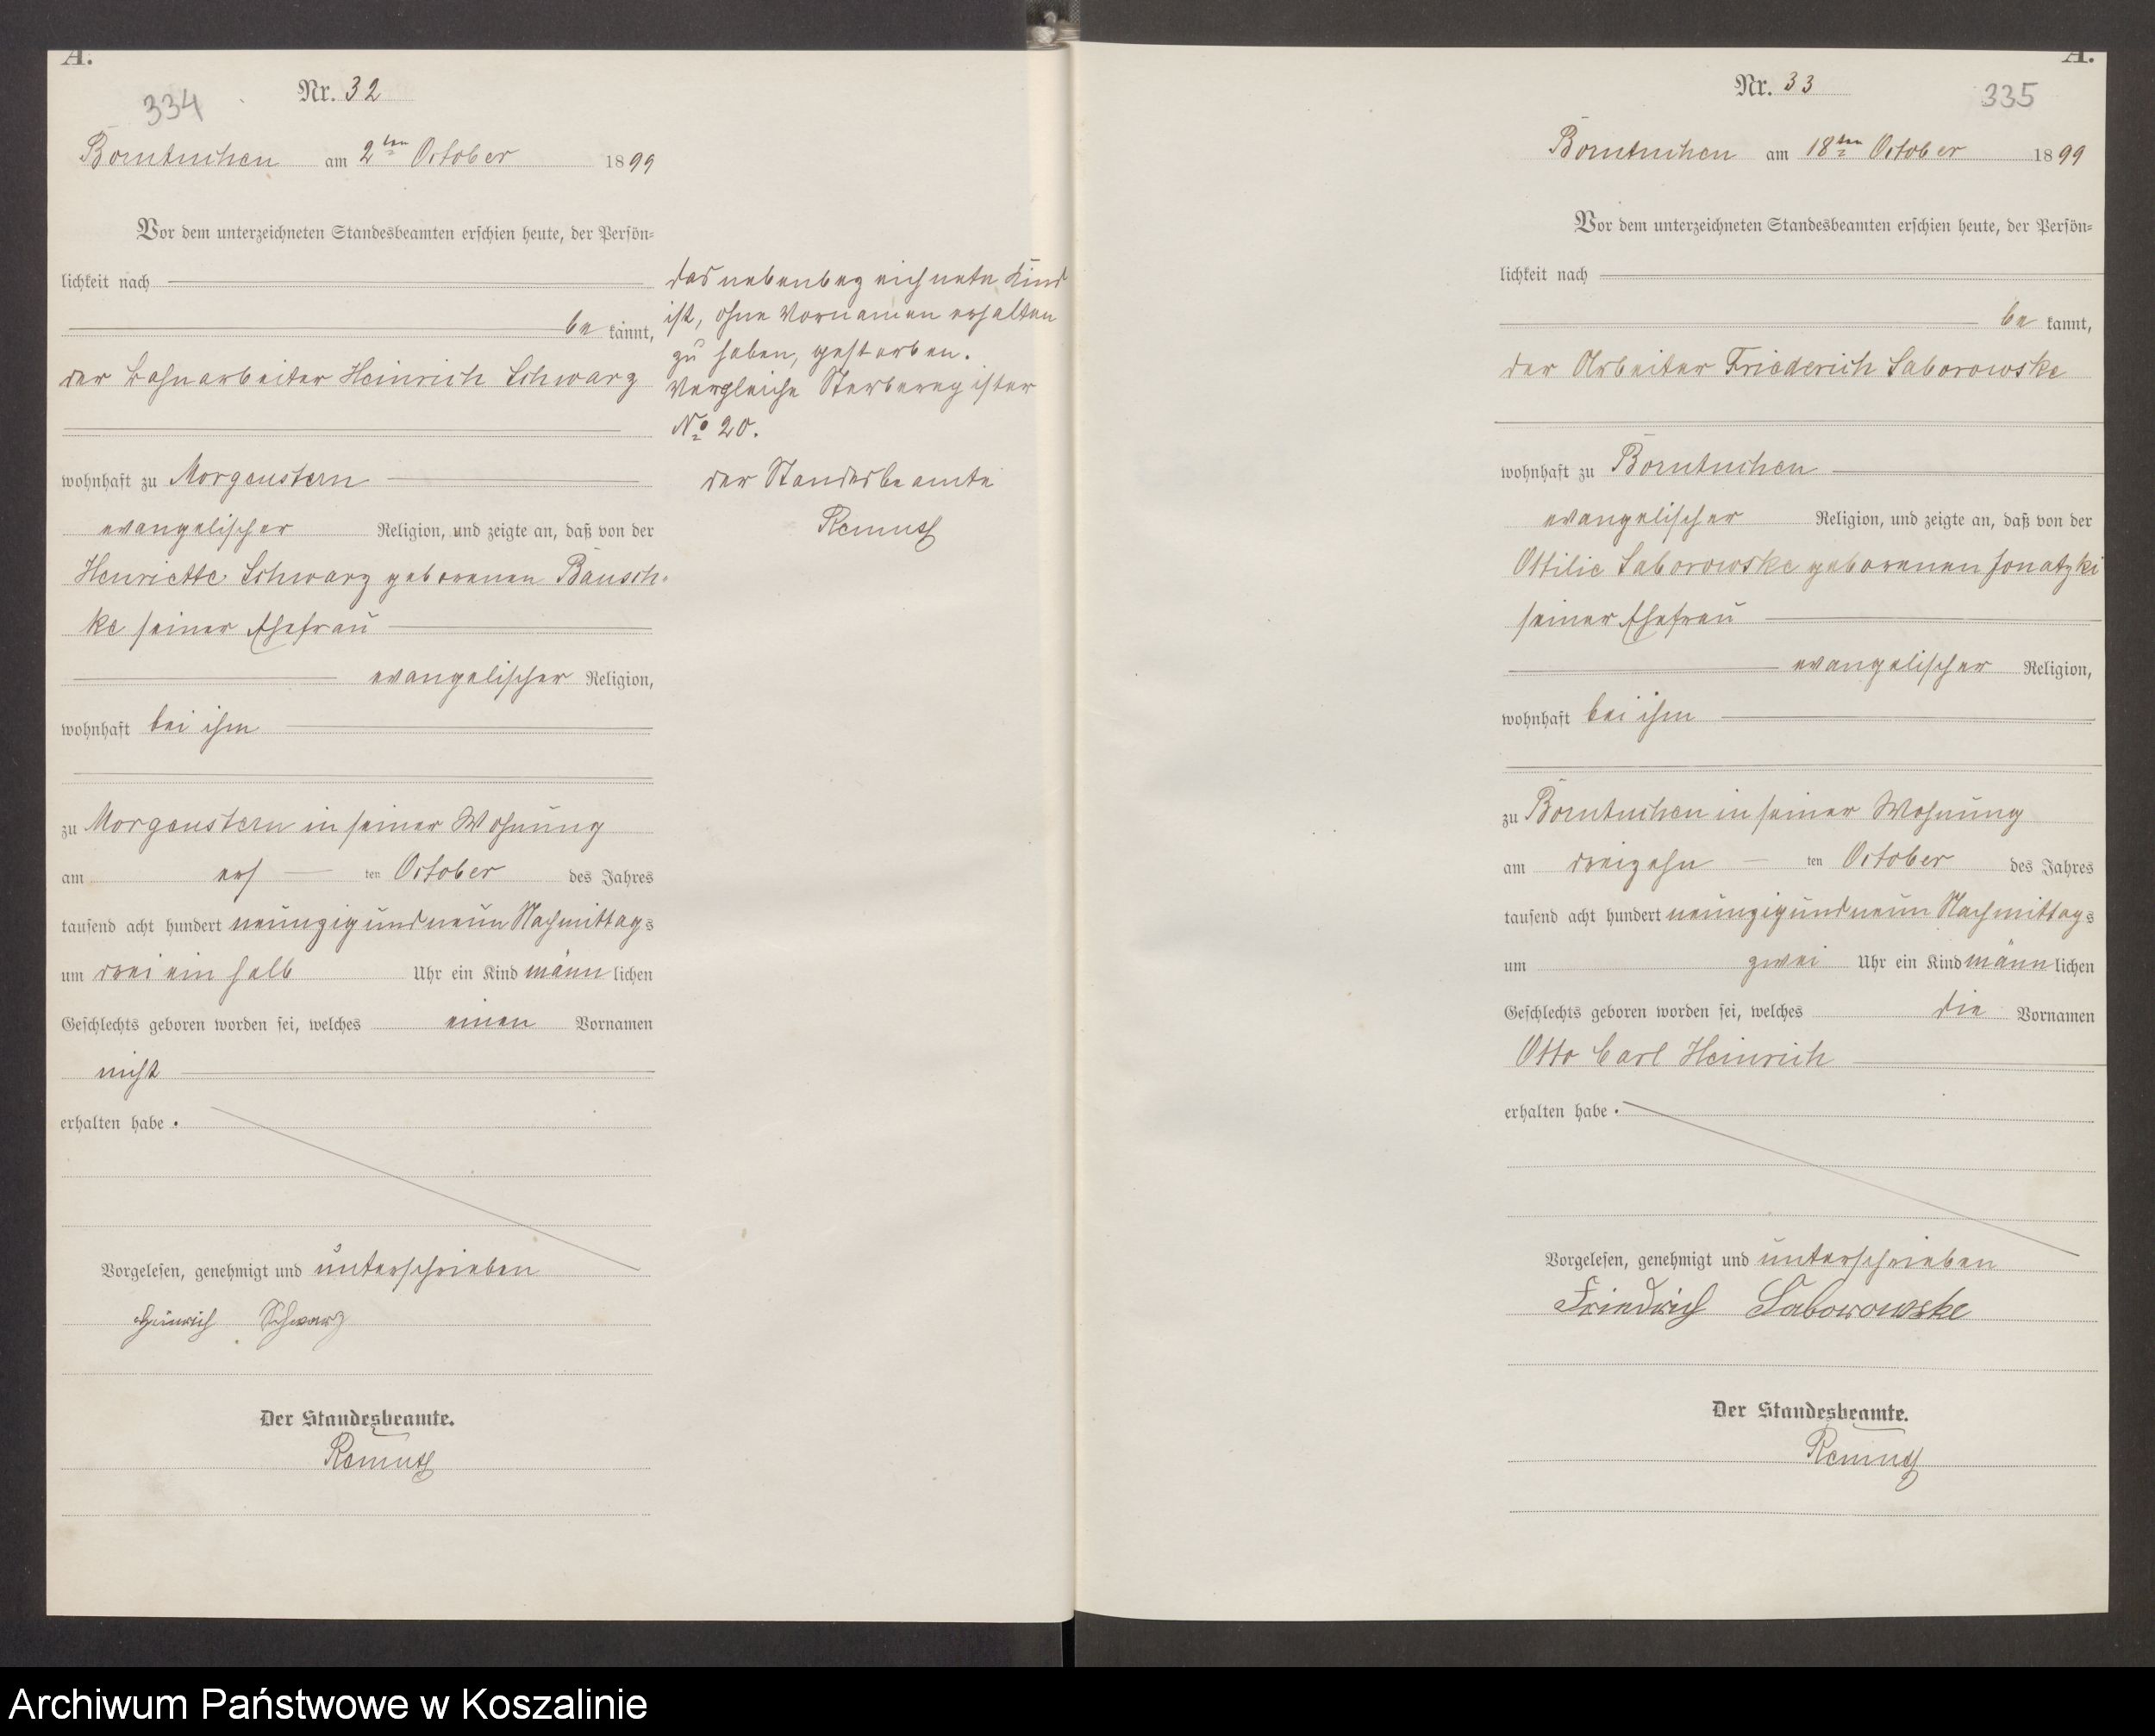 A.
334
Nr. 32
Borntuchen am 2ten October 1899
Vor dem unterzeichneten Standesbeamten erschien heute, der Persön=
lichkeit nach
be kannt,
der Lohnarbeiter Heinrich Schwarz
wohnhaft zu Morgenstern
evangelischer Religion, und zeigte an, daß von der
Henriette Schwarz geborenen Bausch-
ke seiner Ehefrau
evangelischer Religion,
wohnhaft bei ihm
zu Morgenstern in seiner Wohnung
am ers ten October des Jahres
tausend acht hundert neunzig und neun Nachmittags
um drei ein halb Uhr ein Kind männlichen
Geschlechts geboren worden sei, welches einen Vornamen
nicht
erhalten habe.
Vorgelesen, genehmigt und unterschrieben
Heinrich Schwarz
Der Standesbeamte.
Remus
das nebenbezeichnete Kind
ist, ohne Vornamen erhalten
zu haben, gestorben.
Vergleiche Sterberegister
No 20.
der Standesbeamte
Remus
A.
Nr. 33
335
Borntuchen am 18ten October 1899
Vor dem unterzeichneten Standesbeamten erschien heute, der Persön=
lichkeit nach
be kannt,
der Arbeiter Friederich Saborowske
wohnhaft zu Borntuchen
evangelischer Religion, und zeigte an, daß von der
Ottilie Saborowske geborenen Jonatzki
seiner Ehefrau
evangelischer Religion,
wohnhaft bei ihm
zu Borntuchen in seiner Wohnung
am dreizehn ten October des Jahres
tausend acht hundert neunzig und neun Nachmittags
um zwei Uhr ein Kind männlichen
Geschlechts geboren worden sei, welches die Vornamen
Otto Carl Heinrich
erhalten habe.
Vorgelesen, genehmigt und unterschrieben
Friedrich Saborowske
Der Standesbeamte.
Remus
Archiwum Państwowe w Koszalinie